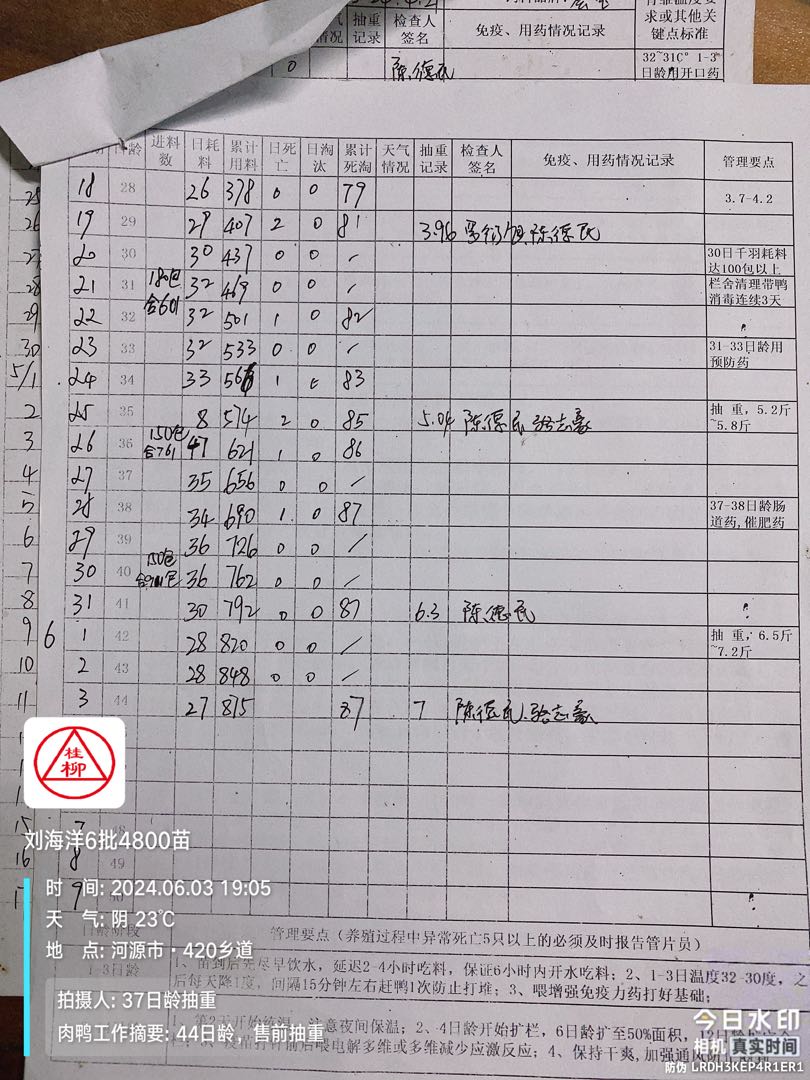 抽重记录 检查人签名 免疫、用药情况记录 求或其他关键点标准
0 陈德民 32~31C° 1-3日龄用开口药
日龄 进料数 日耗料 累计用料 日死亡 日淘汰 累计死淘 天气情况 抽重记录 检查人签名 免疫、用药情况记录 管理要点
18 28 26 378 0 0 79 3.7-4.2
19 29 29 407 2 0 81 3.96 陈德民
20 30 30 437 0 0 / 30日千羽耗料达100包以上
21 31 180包合601 32 469 0 0 / 栏舍清理带鸭消毒连续3天
22 32 32 501 1 0 82 〃
23 33 32 533 0 0 / 31-33日龄用预防药
24 34 33 566 1 0 83
25 35 8 574 2 0 85 5.04 陈德民 骆志豪 抽 重，5.2斤~5.8斤
26 36 150包合761 47 621 1 0 86
27 37 35 656 0 0 /
28 38 34 690 1 0 87 37-38日龄肠道药,催肥药
29 39 36 726 0 0 /
30 40 150包 36 762 0 0 /
31 41 30 792 0 0 87 6.3 陈德民 〃
6 1 42 28 820 0 0 / 抽 重，6.5斤~7.2斤
2 43 28 848 0 0 /
3 44 27 875 87 7 陈德民.骆志豪
桂柳
7 48
8 49
9 50 〃
刘海洋6批4800苗
时 间: 2024.06.03 19:05
天 气: 阴 23℃
地 点: 河源市·420乡道
拍摄人: 37日龄抽重
肉鸭工作摘要: 44日龄，售前抽重
日龄阶段 管理要点（养殖过程中异常死亡5只以上的必须及时报告管片员）
1-3日龄 1、苗到后先尽早饮水，延迟2-4小时吃料，保证6小时内开水吃料；2、1-3日温度32-30度，之后每天降1度，间隔15分钟左右赶鸭1次防止打堆；3、喂增强免疫力药打好基础；
注意夜间保温；2、4日龄开始扩栏，6日龄扩至50%面积，12日龄
喂电解多维或多维减少应激反应；4、保持干爽,加强通风
今日水印
相机 真实时间
防伪 LRDH3KEP4R1ER1